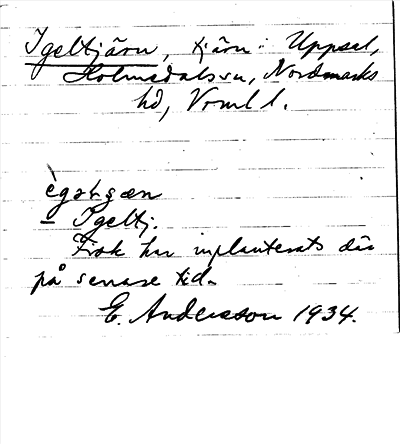 Igeltjärn, tjärn i Uppsal,
Holmedals sn, Nordmarks
hd, Vrml l.
– Igeltj.
Fisk har inplanterats där
på senare tid.
E. Andersson 1934.